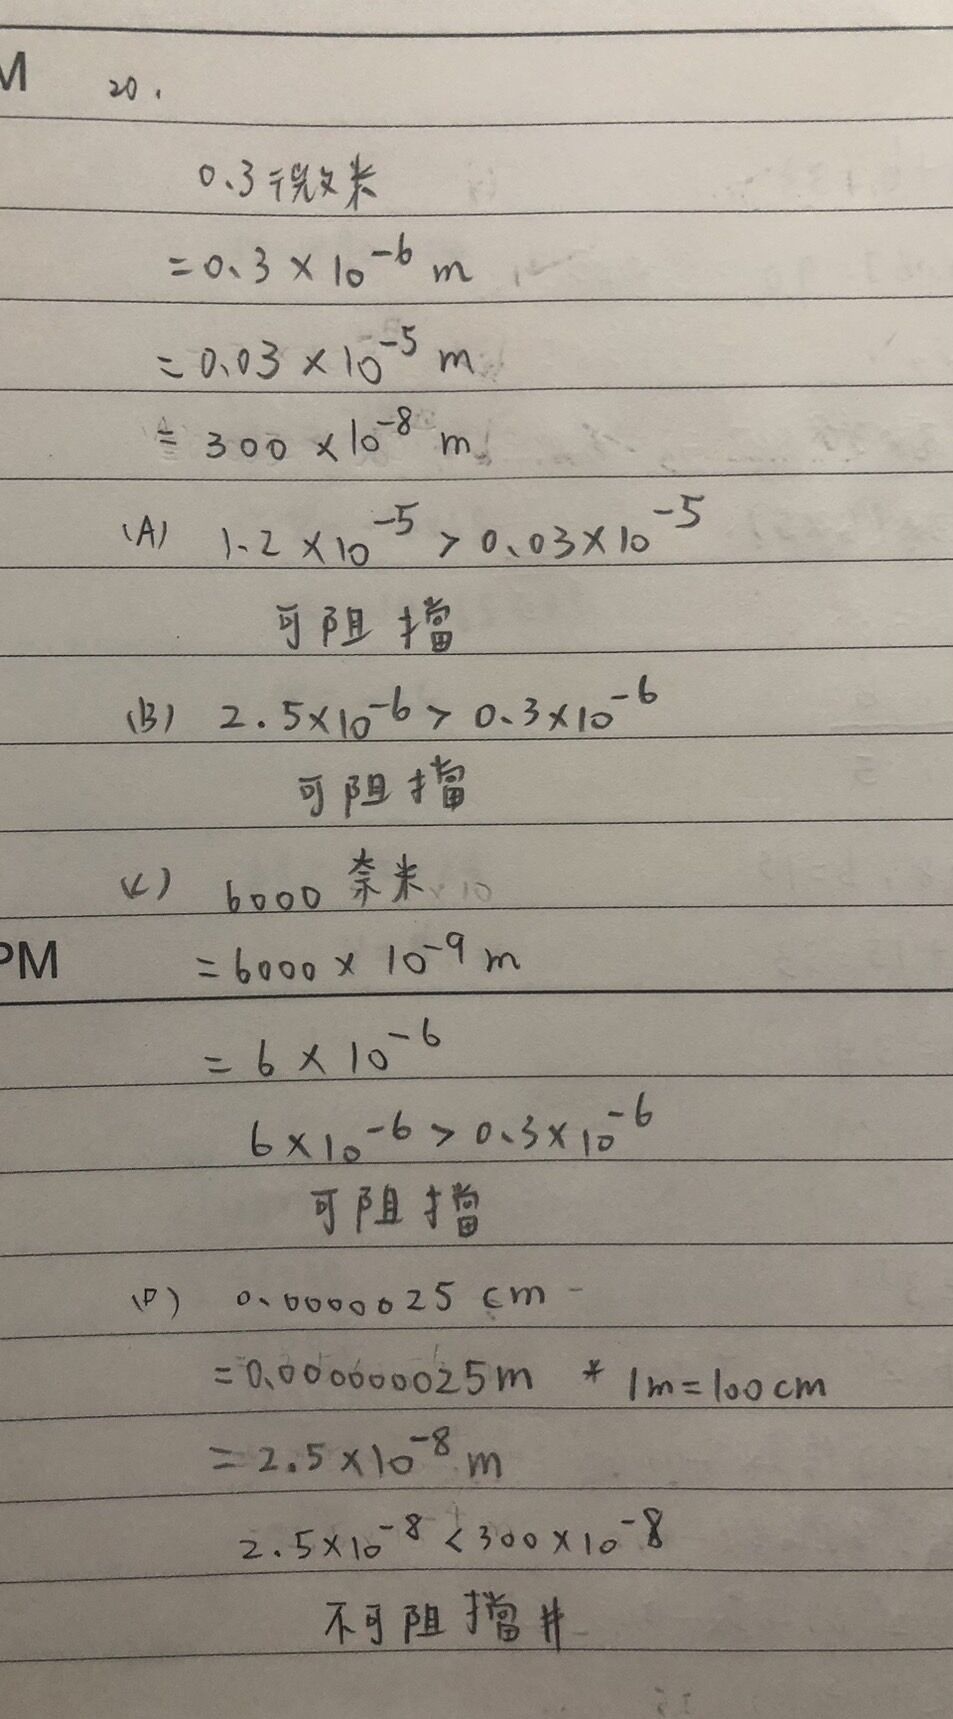 M
20.
0.3微米
=0.3×10⁻⁶ m
=0.03×10⁻⁵ m
=300×10⁻⁸ m
(A) 1.2×10⁻⁵ > 0.03×10⁻⁵
可阻擋
(B) 2.5×10⁻⁶ > 0.3×10⁻⁶
可阻擋
(C) 6000 奈米
PM
=6000×10⁻⁹ m
=6×10⁻⁶
6×10⁻⁶ > 0.3×10⁻⁶
可阻擋
(D) 0.0000025 cm
=0.000000025m * 1m=100cm
=2.5×10⁻⁸ m
2.5×10⁻⁸ < 300×10⁻⁸
不可阻擋#